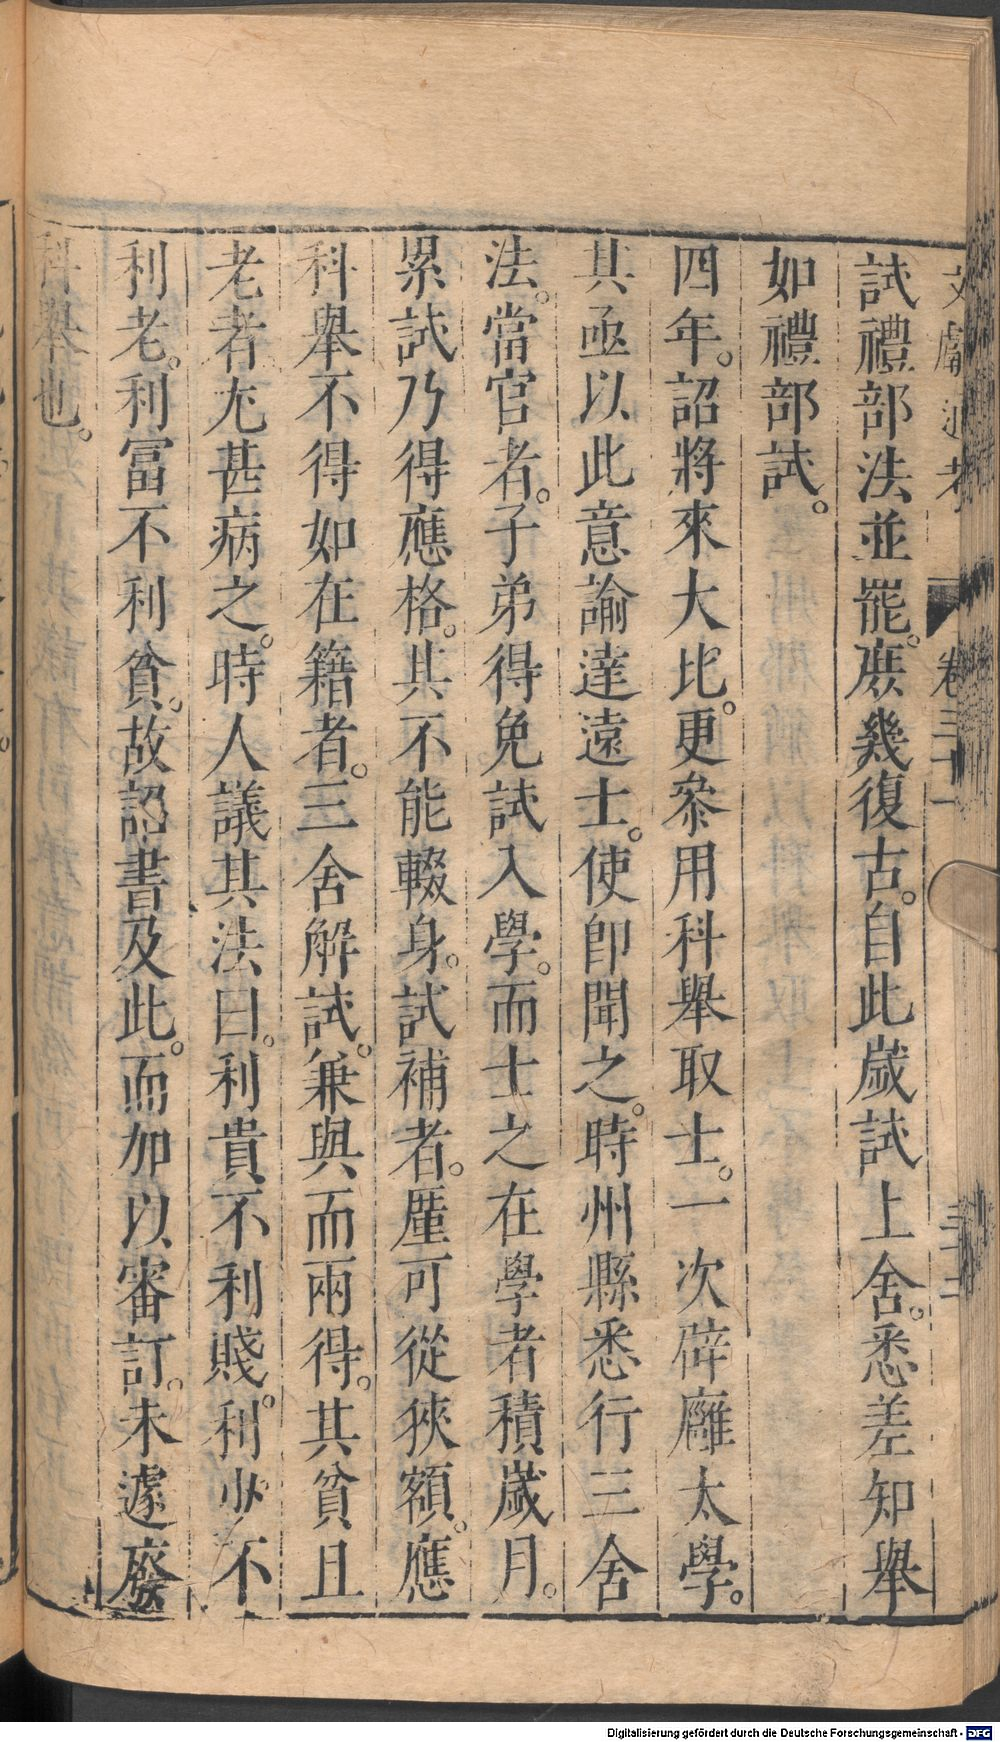 文獻通考 卷三十一 三十二
試禮部法並罷。庶幾復古。自此歲試上舍。悉差知舉
如禮部試。
四年。詔將來大比。更叅用科舉取士。一次辟廱太學。
其亟以此意諭達遠士。使卽聞之。時州縣悉行三舍
法。當官者。子弟得免試入學。而士之在學者積歲月。
累試乃得應格。其不能輟身。試補者。厪可從狹額。應
科舉不得如在籍者。三舍解試。兼與而兩得。其貧且
老者尤甚病之。時人議其法曰。利貴不利賤。利少不
利老。利冨不利貧。故詔書及此。而加以審訂。未遽廢
科舉也。
Digitalisierung gefördert durch die Deutsche Forschungsgemeinschaft - DFG